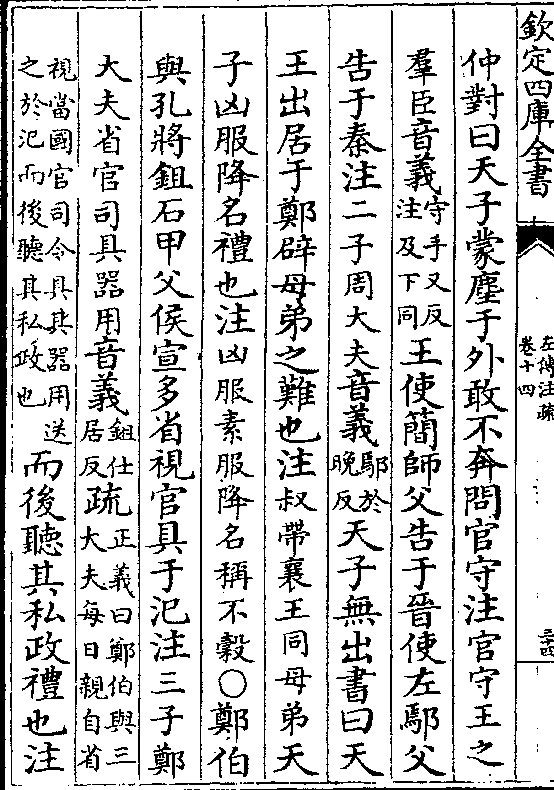 欽定四庫全書
左傳注疏
卷十四
仲對曰天子蒙塵于外敢不奔問官守注官守王之
羣臣音義守手又反注及下同王使簡師父告于晉使左鄢父
告于秦注二子周大夫音義鄢於晚反天子無出書曰天
王出居于鄭辟母弟之難也注叔帶襄王同母弟天
子凶服降名禮也注凶服素服降名稱不榖○鄭伯
與孔將鉏石甲父侯宣多省視官具于氾注三子鄭
大夫省官司具器用音義鉏仕居反疏正義曰鄭伯與三大夫每日親自省
視當國官司令具其器用送之於氾而後聽其私政也而後聽其私政禮也注